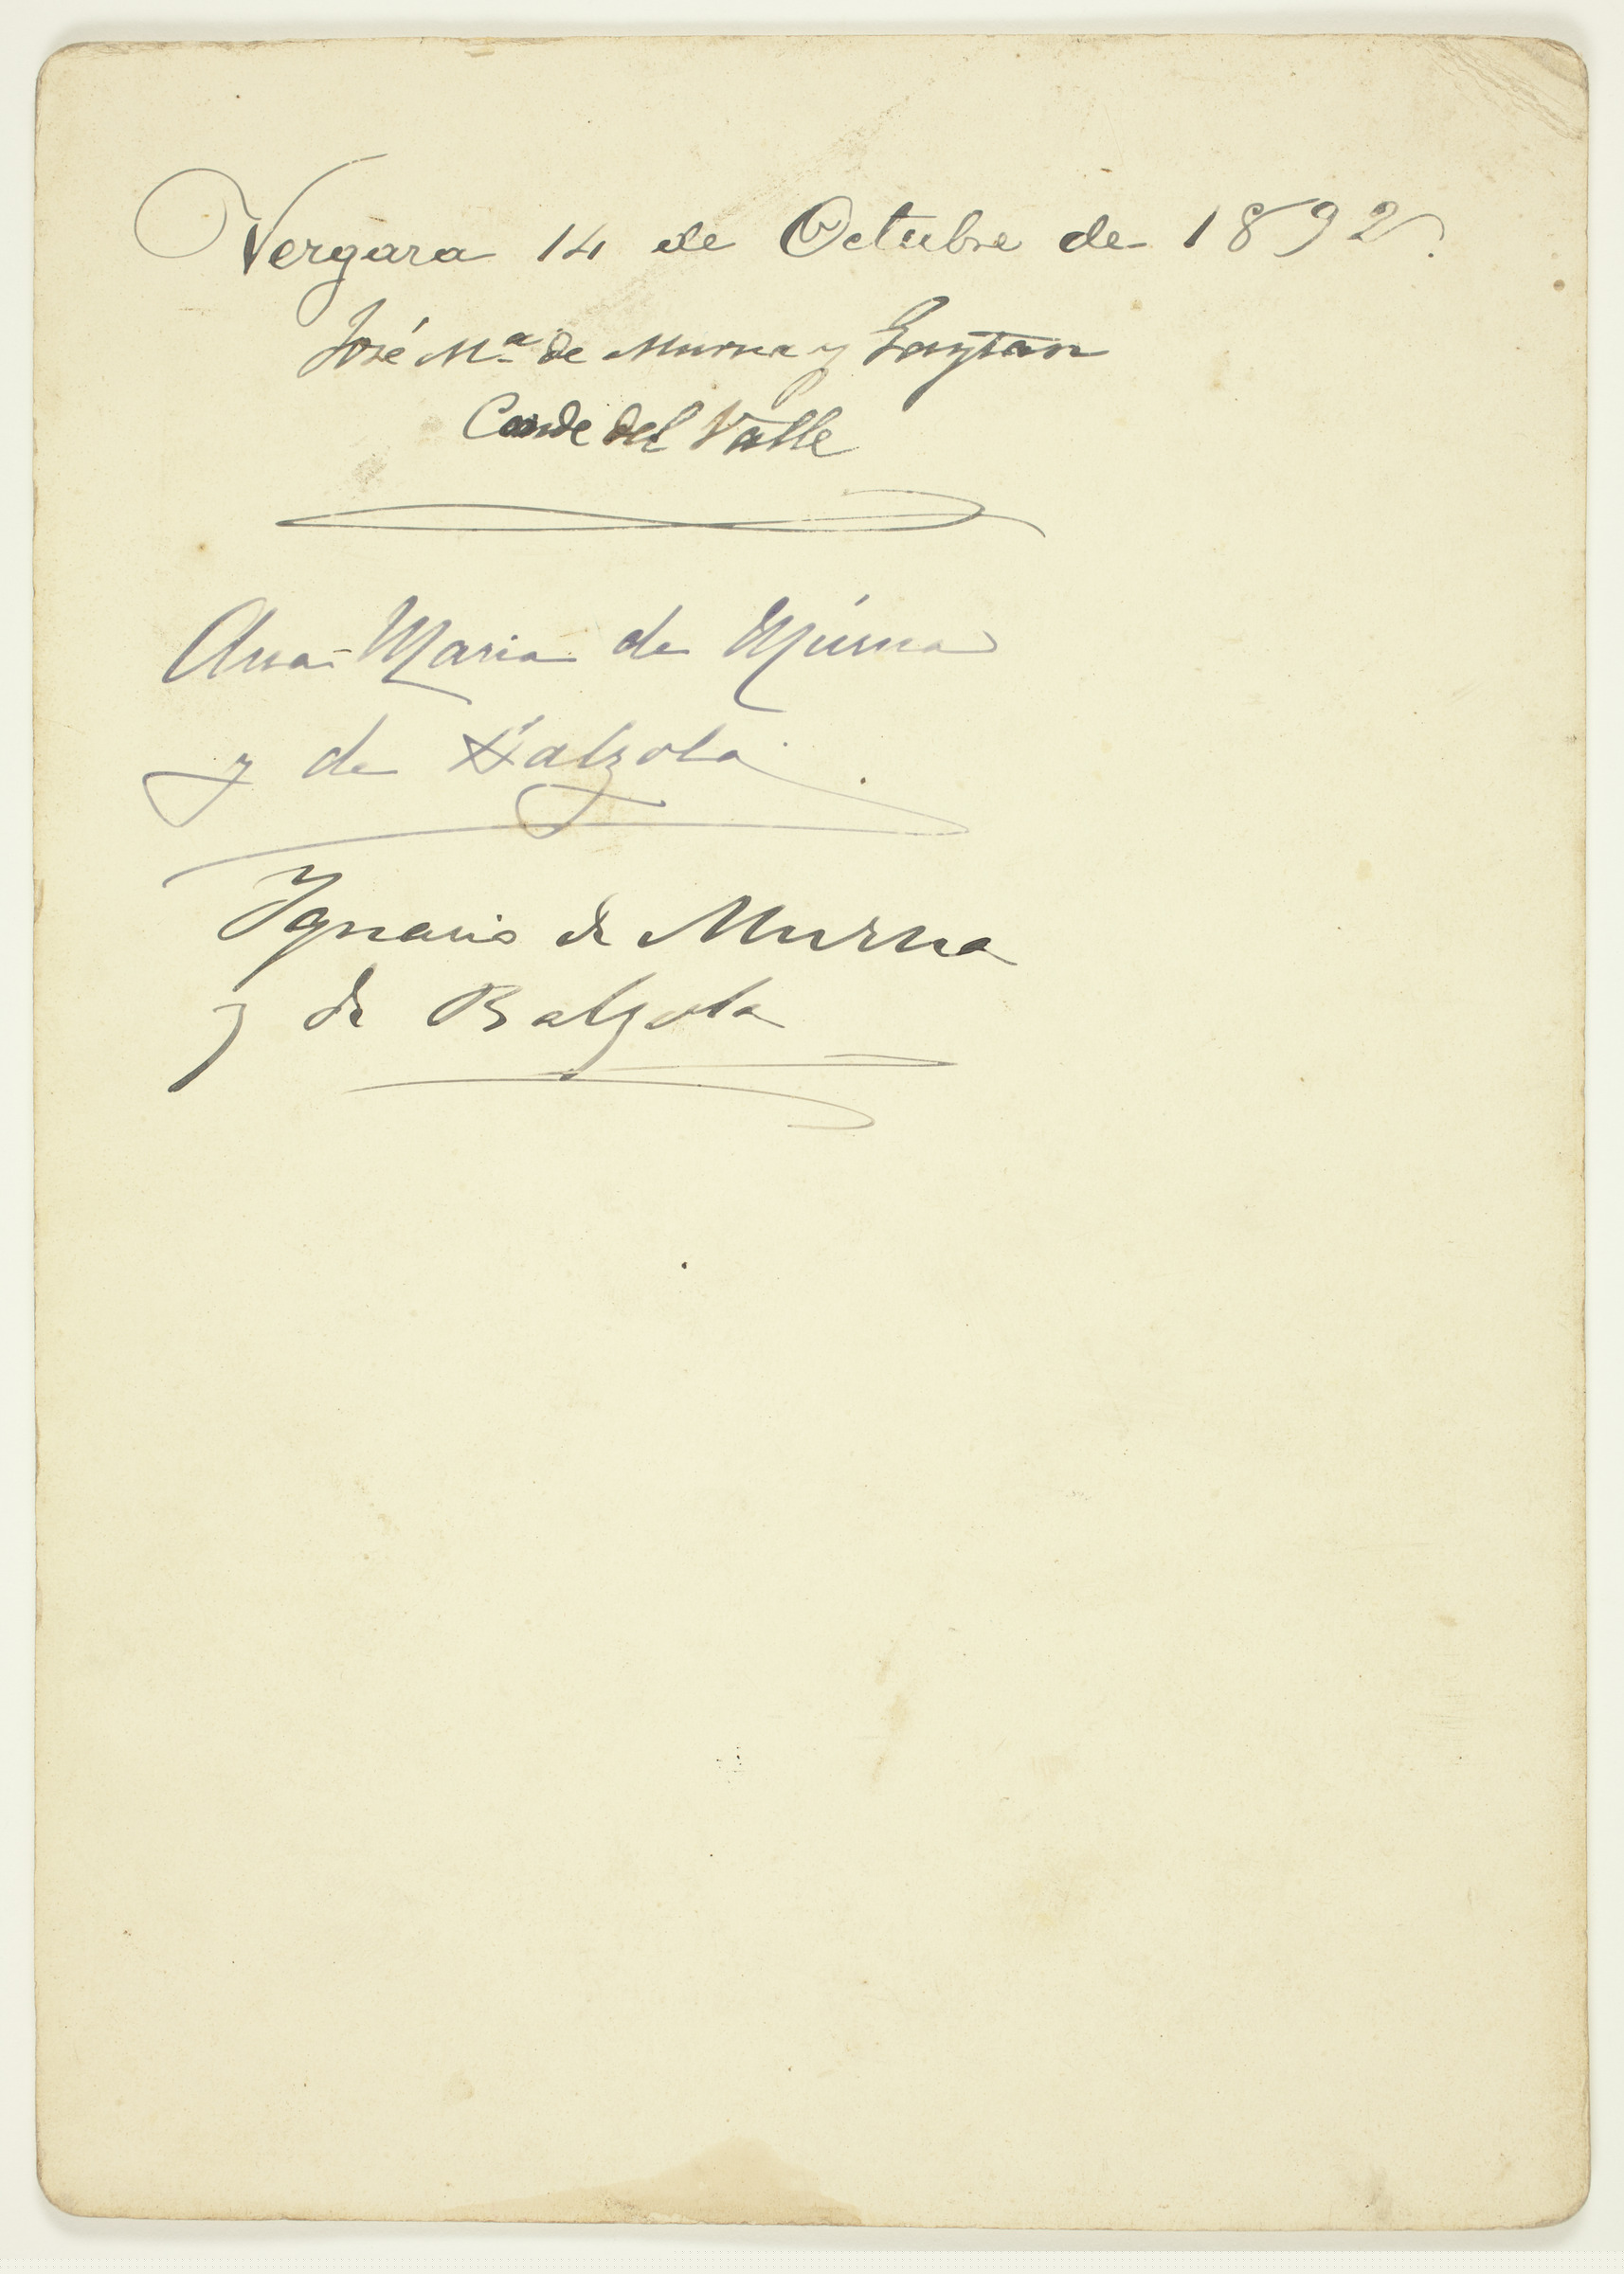 Vergara 14 de Octubre de 1892.
José Mª de Murua y Gaytan
Conde del Valle
Ana-Maria de Múrua
y de Balzola.
Ygnacio de Murua
y de Balzola